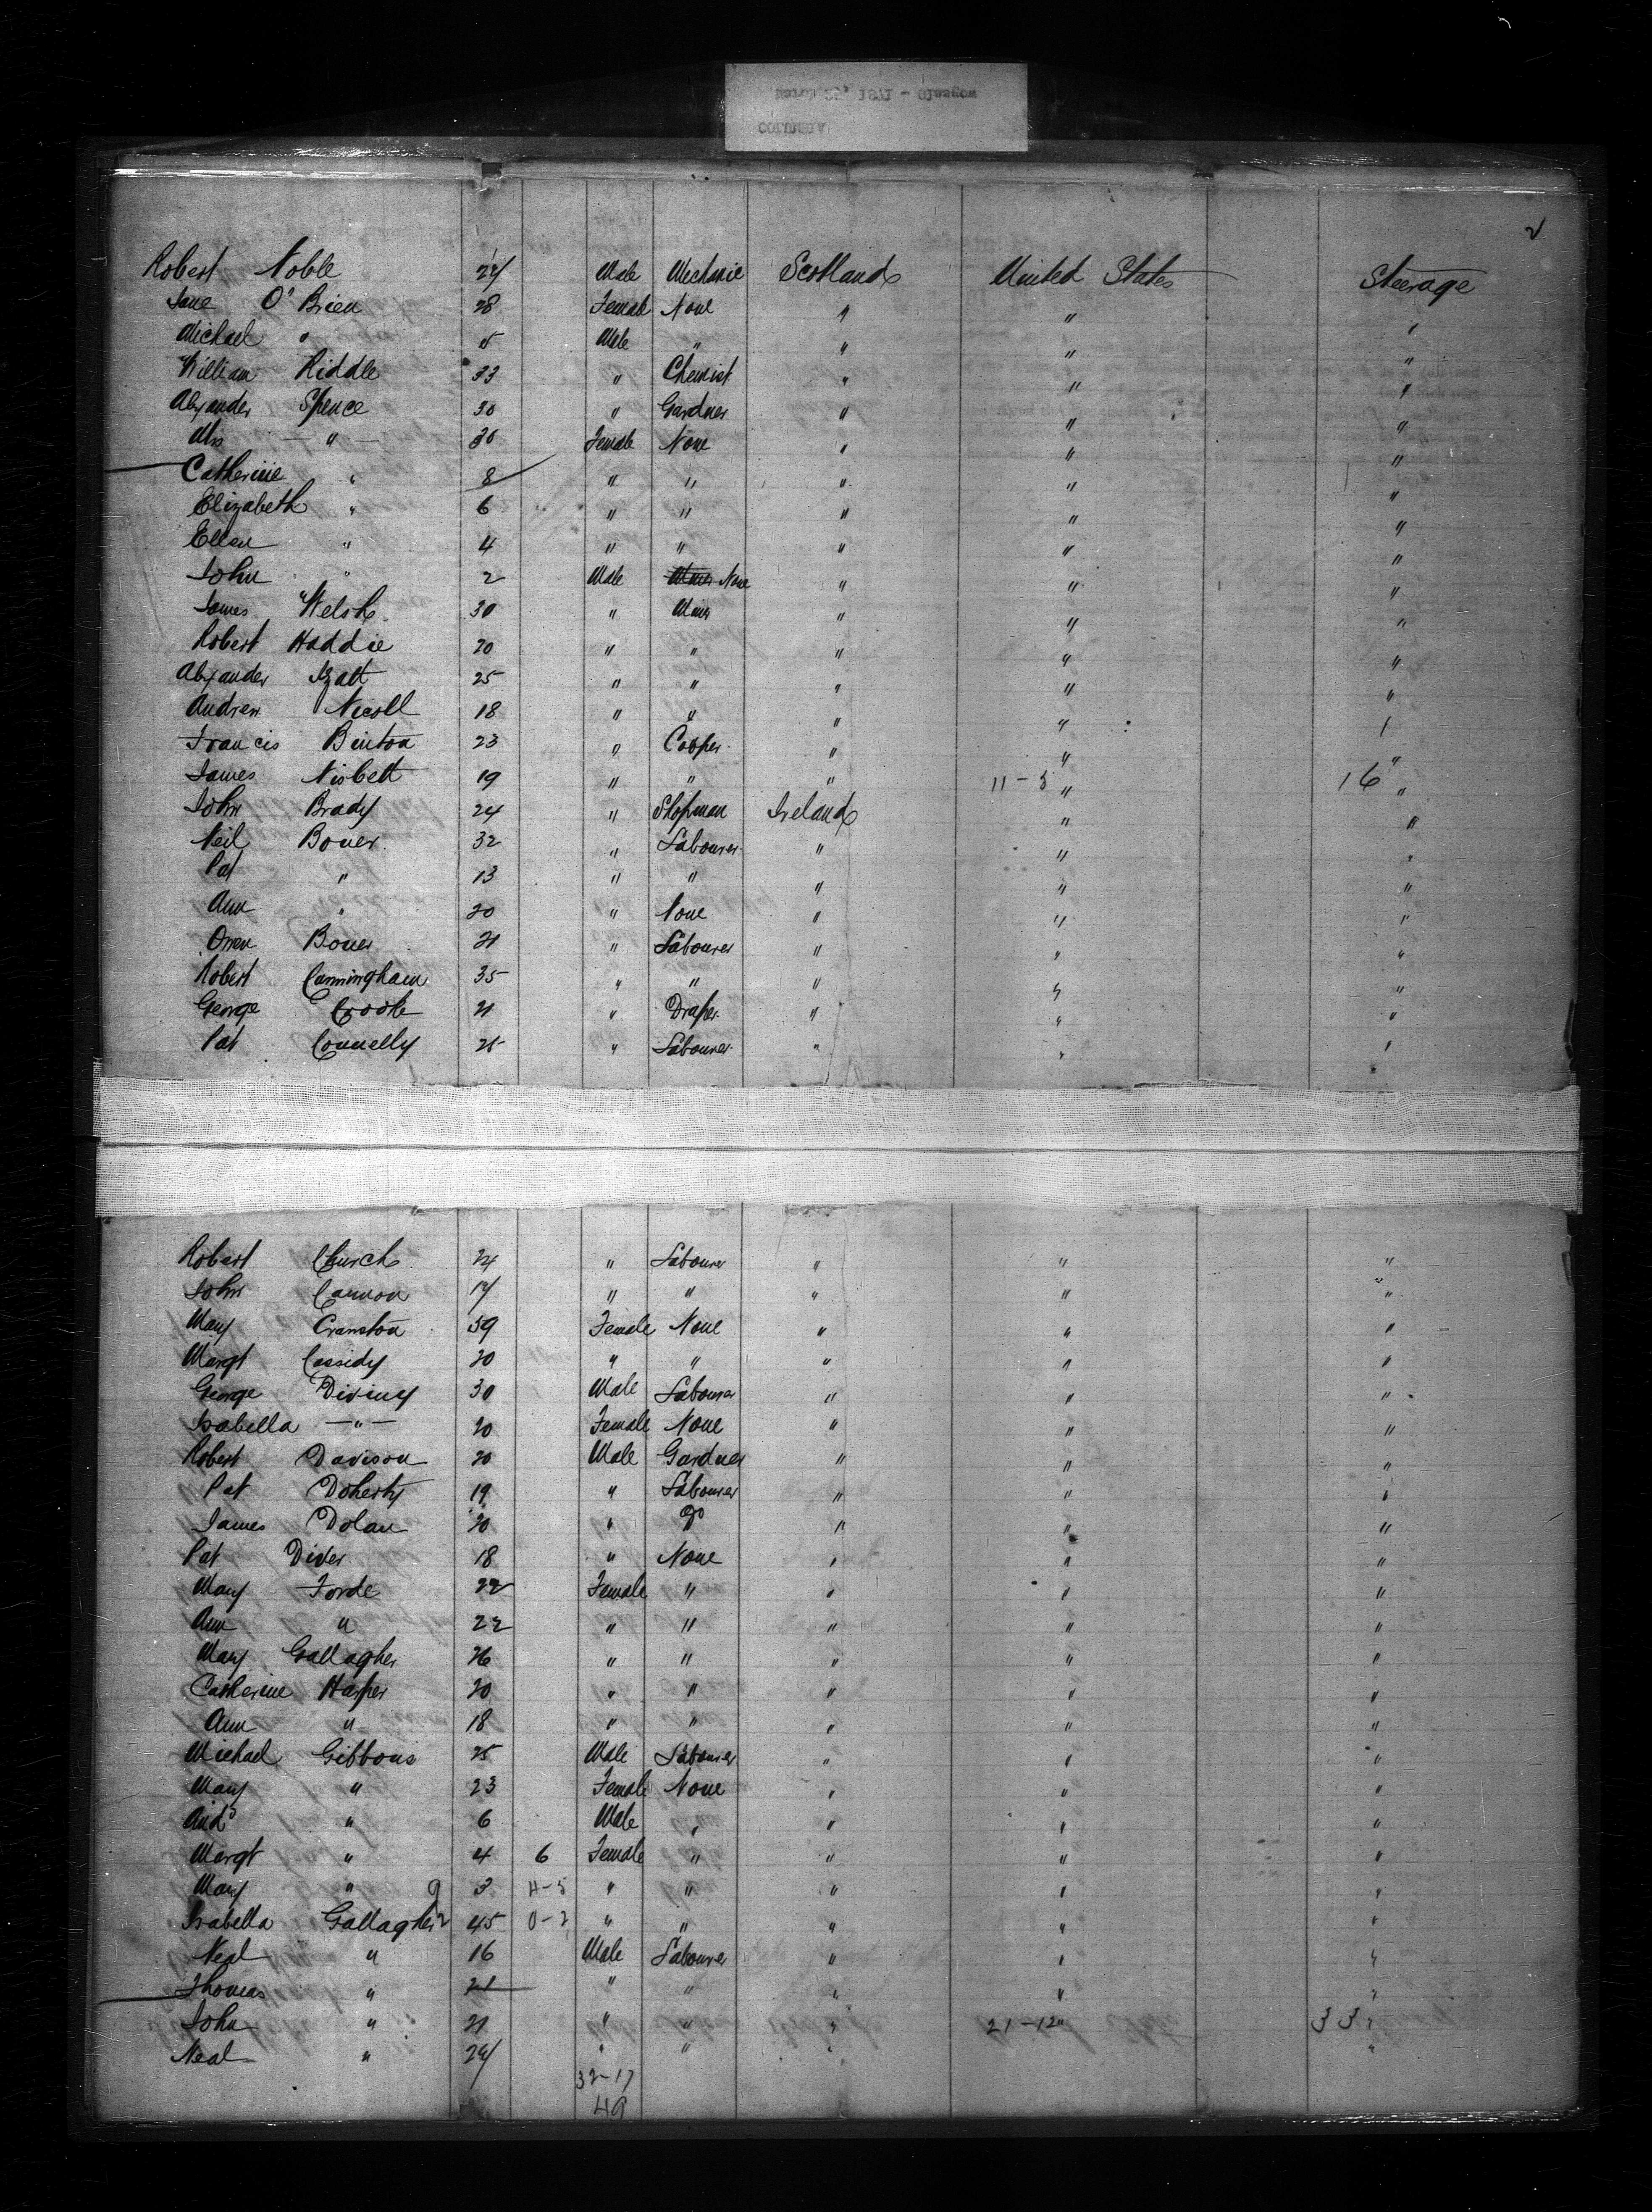 March 25, 1871 - Glasgow
COLUMBIA
2
Robert Noble 27 Male Mechanic Scotland United States Steerage
Jane O'Brien 28 Female None " " "
Michael " 5 Male " " " "
William Riddle 33 " Chemist " " "
Alexander Spence 30 " Gardner " " "
Mrs — " — 30 Female None " " "
Catherine " 8 " " " " "
Elizabeth " 6 " " " " "
Ellen " 4 " " " " "
John " 2 Male Miner None " " "
James Welsh 30 " Miner " " "
Robert Haddie 20 " " " " "
Alexander Izatt 25 " " " " "
Andrew Nicoll 18 " " " " "
Francis Binton 23 " Cooper " " "
James Nisbett 19 " " " 11-5 " 16 "
John Brady 24 " Shopman Ireland " "
Neil Boner 32 " Labourer " " "
Pat " 13 " " " " "
Ann " 20 " None " " "
Owen Boner 21 " Labourer " " "
Robert Cunningham 35 " " " " "
George Crooke 21 " Draper " " "
Pat Connelly 25 " Labourer " " "
Robert Church 24 " Labourer " " "
John Cannon 17 " " " " "
Mary Cranston 59 Female None " " "
Margt Cassidy 20 " " " " "
George Diviney 30 Male Labourer " " "
Isabella — " — 20 Female None " " "
Robert Davison 20 Male Gardner " " "
Pat Doherty 19 " Labourer " " "
James Dolan 20 " Do " " "
Pat Diver 18 " None " " "
Mary Forde 22 Female " " " "
Ann " 22 " " " " "
Mary Gallagher 26 " " " " "
Catherine Harper 20 " " " " "
Ann " 18 " " " " "
Michael Gibbons 25 Male Labourer " " "
Mary " 23 Female None " " "
And " 6 Male " " " "
Margt " 4 6 Female " " " "
Mary " 9 3 H-5 " " " " "
Isabella Gallagher 2 45 0-2 " " " " "
Neal " 16 Male Labourer " " "
Thomas " 21 " " " " "
John " 21 " " " 21-12 " 33 "
Neal " 24 " " " "
32-17
49